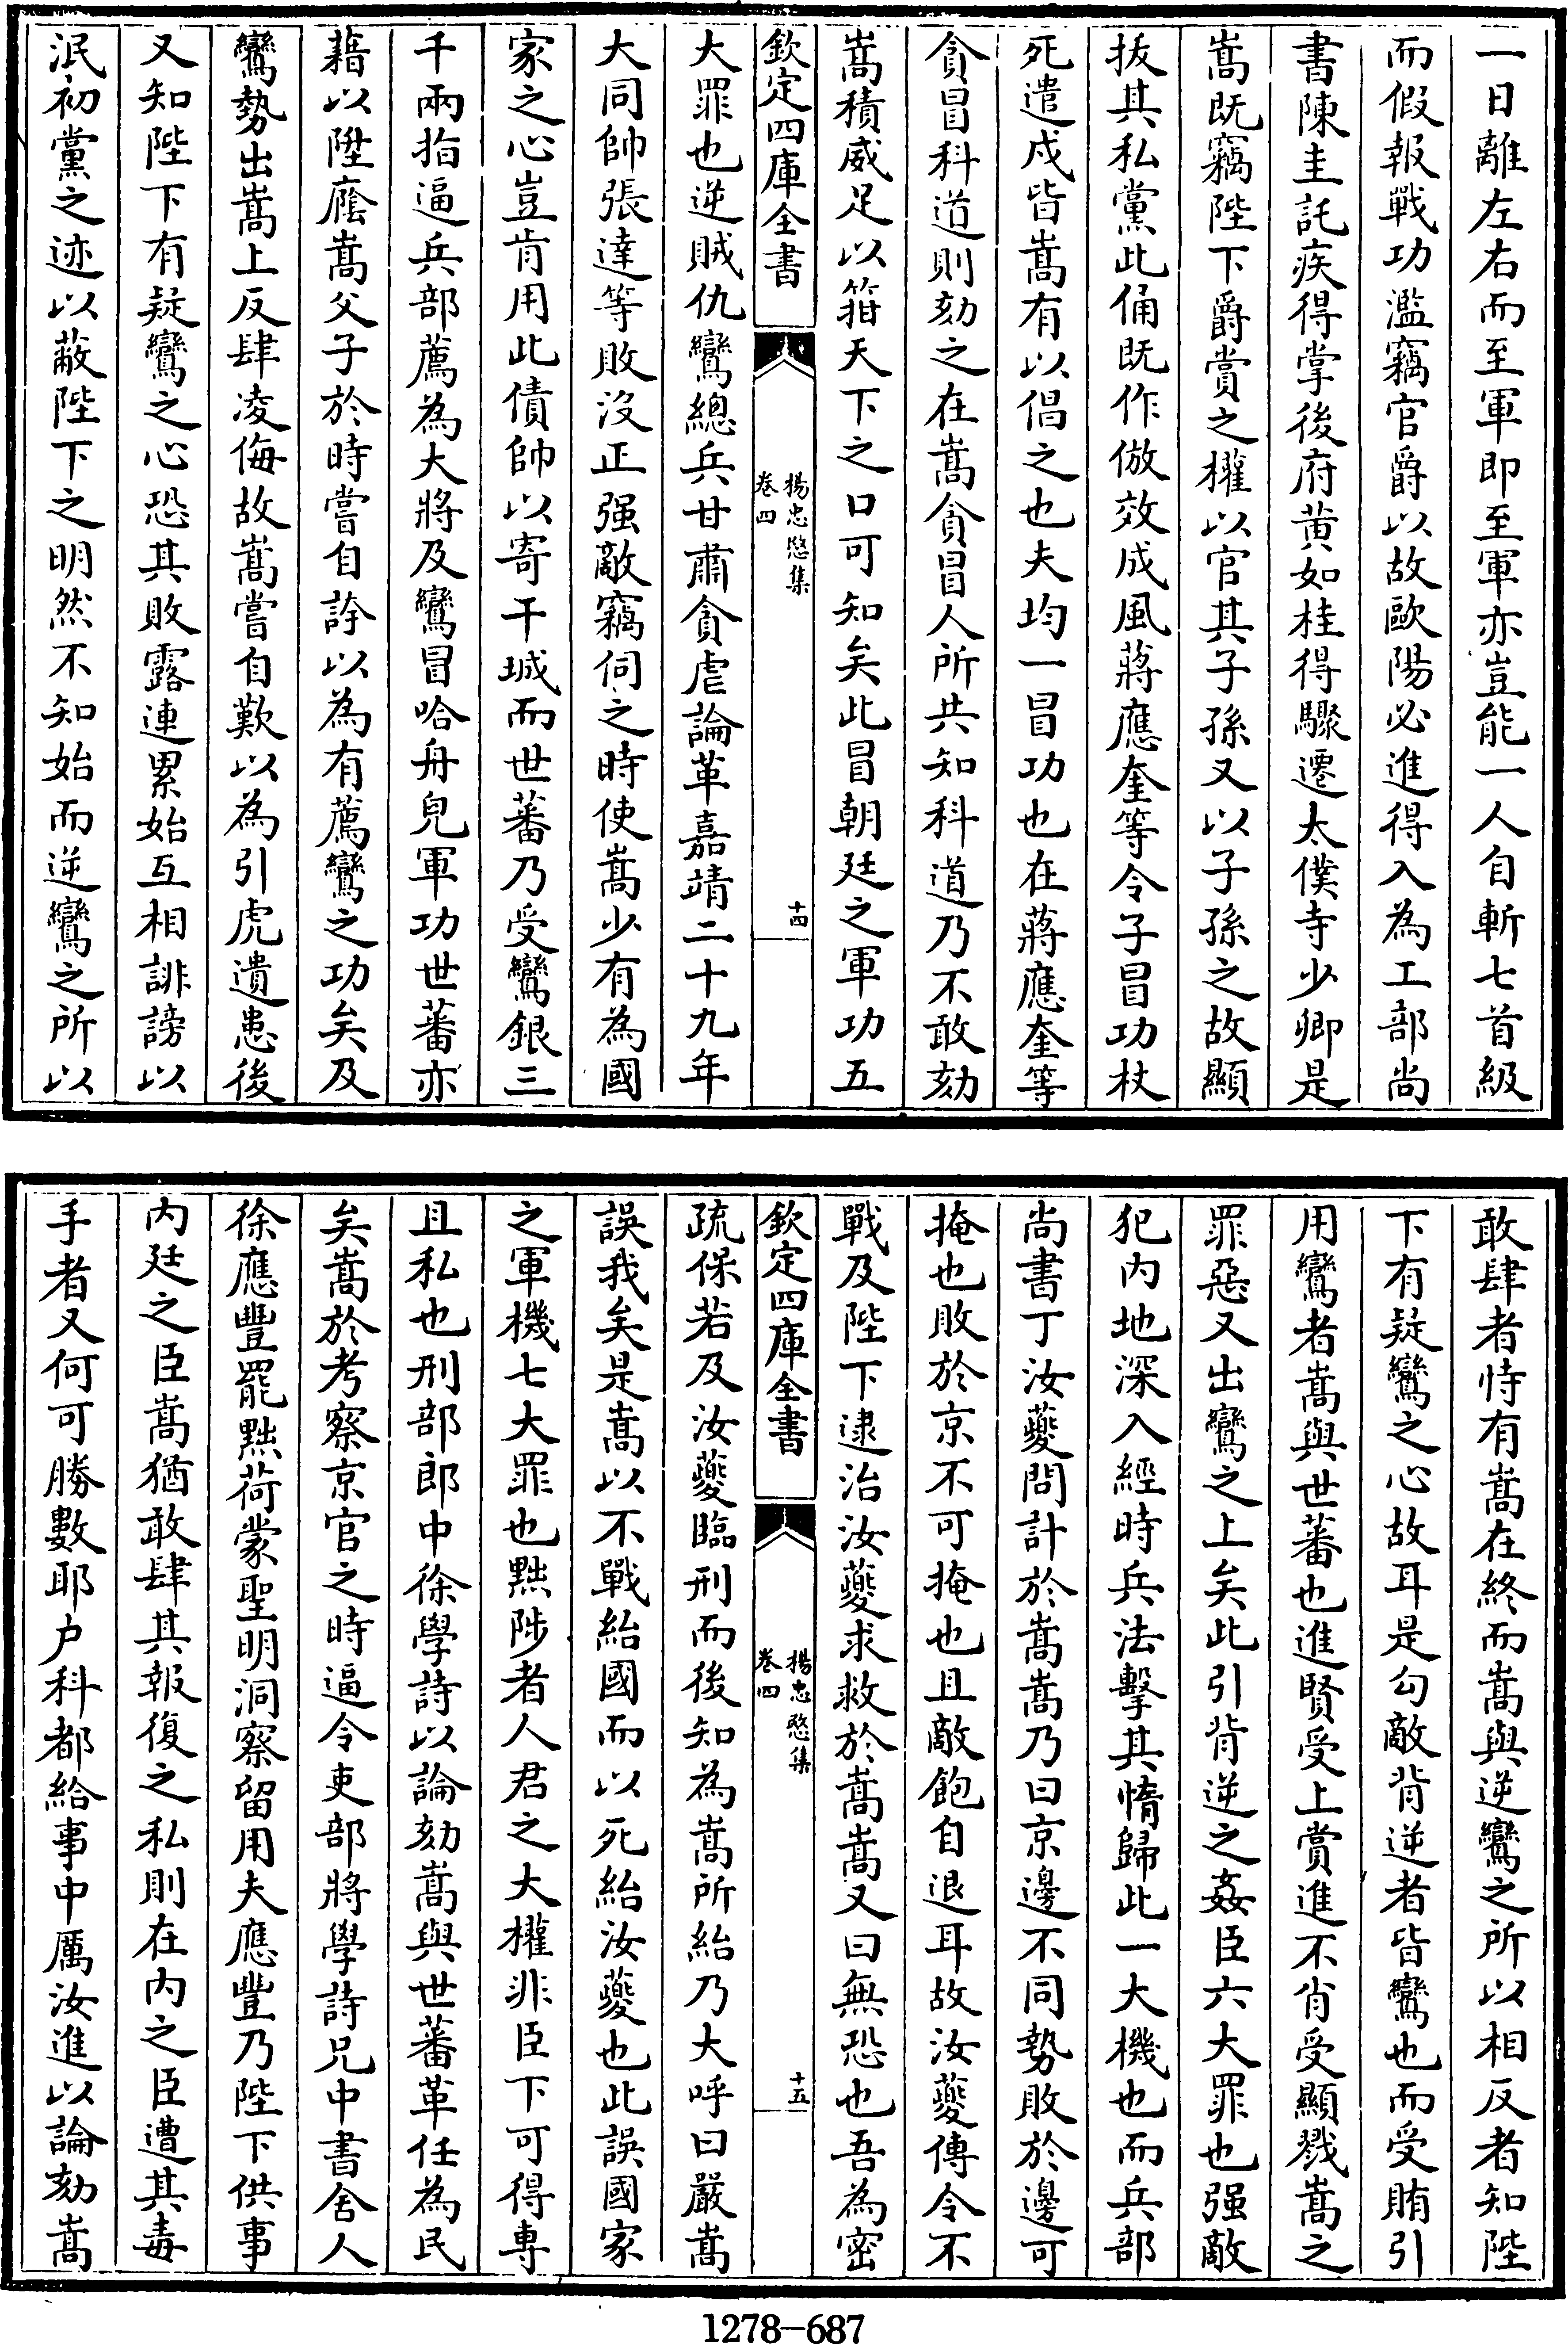 一日離左右而至軍即至軍亦豈能一人自斬七首級
而假報戰功濫竊官爵以故歐陽必進得入為工部尚
書陳圭託疾得掌後府黄如桂得驟遷太僕寺少卿是
嵩既竊陛下爵賞之權以官其子孫又以子孫之故顯
拔其私黨此俑既作倣效成風蔣應奎等令子冒功杖
死遣戍皆嵩有以倡之也夫均一冒功也在蔣應奎等
貪冒科道則劾之在嵩貪冒人所共知科道乃不敢劾
嵩積威足以箝天下之口可知矣此冒朝廷之軍功五
欽定四庫全書
楊忠愍集
卷四
十四
大罪也逆賊仇鸞總兵甘肅貪虐論革嘉靖二十九年
大同帥張達等敗沒正强敵竊伺之時使嵩少有為國
家之心豈肯用此債帥以寄干城而世蕃乃受鸞銀三
千兩指逼兵部薦為大將及鸞冒哈舟兒軍功世蕃亦
藉以陞廕嵩父子於時嘗自誇以為有薦鸞之功矣及
鸞勢出嵩上反肆凌侮故嵩嘗自歎以為引虎遺患後
又知陛下有疑鸞之心恐其敗露連累始互相誹謗以
泯初黨之迹以蔽陛下之明然不知始而逆鸞之所以
敢肆者恃有嵩在終而嵩與逆鸞之所以相反者知陛
下有疑鸞之心故耳是勾敵背逆者皆鸞也而受賄引
用鸞者嵩與世蕃也進賢受上賞進不肖受顯戮嵩之
罪惡又出鸞之上矣此引背逆之姦臣六大罪也强敵
犯内地深入經時兵法擊其惰歸此一大機也而兵部
尚書丁汝夔問計於嵩嵩乃曰京邊不同勢敗於邊可
掩也敗於京不可掩也且敵飽自退耳故汝夔傳令不
戰及陛下逮治汝夔求救於嵩嵩又曰無恐也吾為密
欽定四庫全書
楊忠愍集
卷四
十五
疏保若及汝夔臨刑而後知為嵩所紿乃大呼曰嚴嵩
誤我矣是嵩以不戰紿國而以死紿汝夔也此誤國家
之軍機七大罪也黜陟者人君之大權非臣下可得專
且私也刑部郎中徐學詩以論劾嵩與世蕃革任為民
矣嵩於考察京官之時逼令吏部將學詩兄中書舍人
徐應豐罷黜荷蒙聖明洞察留用夫應豐乃陛下供事
内廷之臣嵩猶敢肆其報復之私則在内之臣遭其毒
手者又何可勝數耶户科都給事中厲汝進以論劾嵩
1278-687